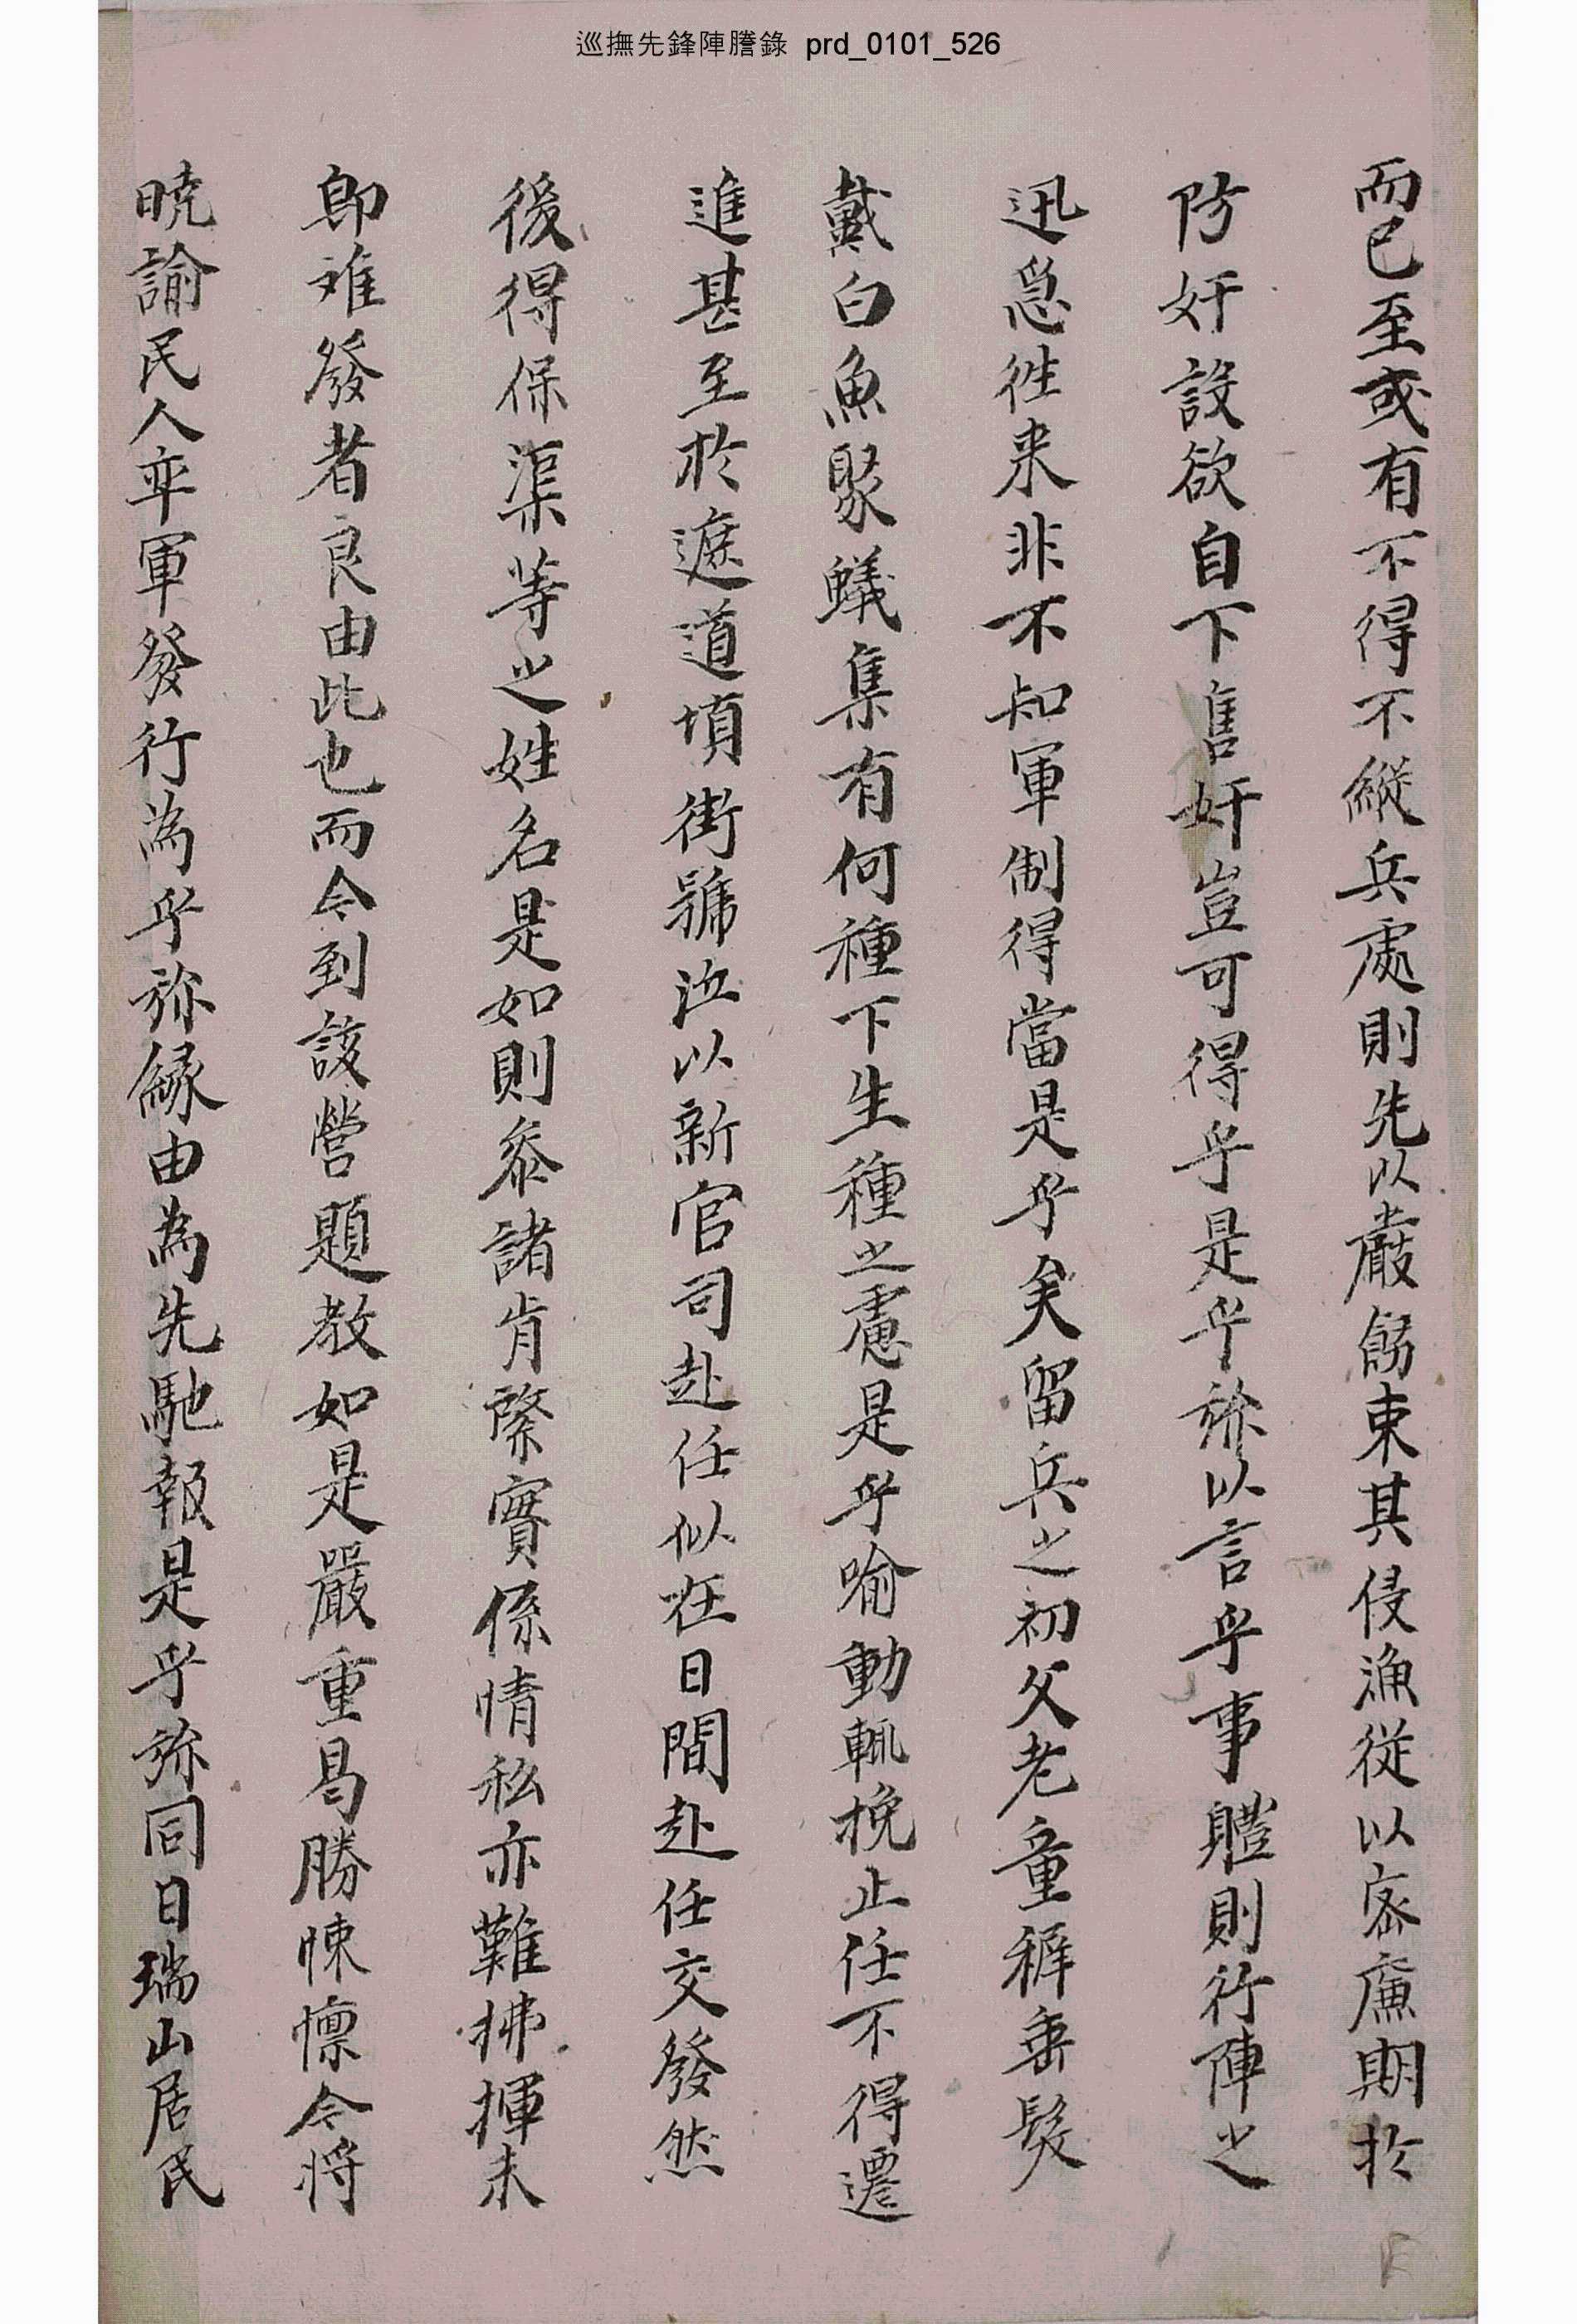 巡撫先鋒陣謄錄 prd_0101_526
而已至或有不得不縱兵處則先以嚴飭束其侵漁從以密廉期於
防奸設欲自下售奸豈可得乎是乎旀以言乎事軆則行陣之
迅急徃来非不知軍制得當是乎矣留兵之初父老童穉垂髮
戴白魚聚蟻集有何種下生種之慮是乎喩動輒挽止任不得遷
進甚至於遮道塡街號泣以新官司赴任似在日間赴任交發然
後得保渠等之姓名是如則叅諸肯綮實係情私亦難拂揮未
卽难發者良由此也而今到該營題教如是嚴重曷勝悚懍今將
曉諭民人卒軍發行為乎旀緣由為先馳報是乎旀同日瑞山居民